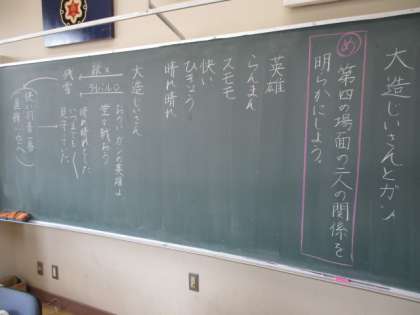 大造じいさんとガン
め 第四の場面の二人の関係を
明らかにしよう。
英雄
らんまん
スモモ
快い
ひきょう
晴れ晴れ
大造じいさん
おおいガンの英雄よ
堂々と戦おう
晴れ晴れとした
いつまでも
見守っていた
残雪